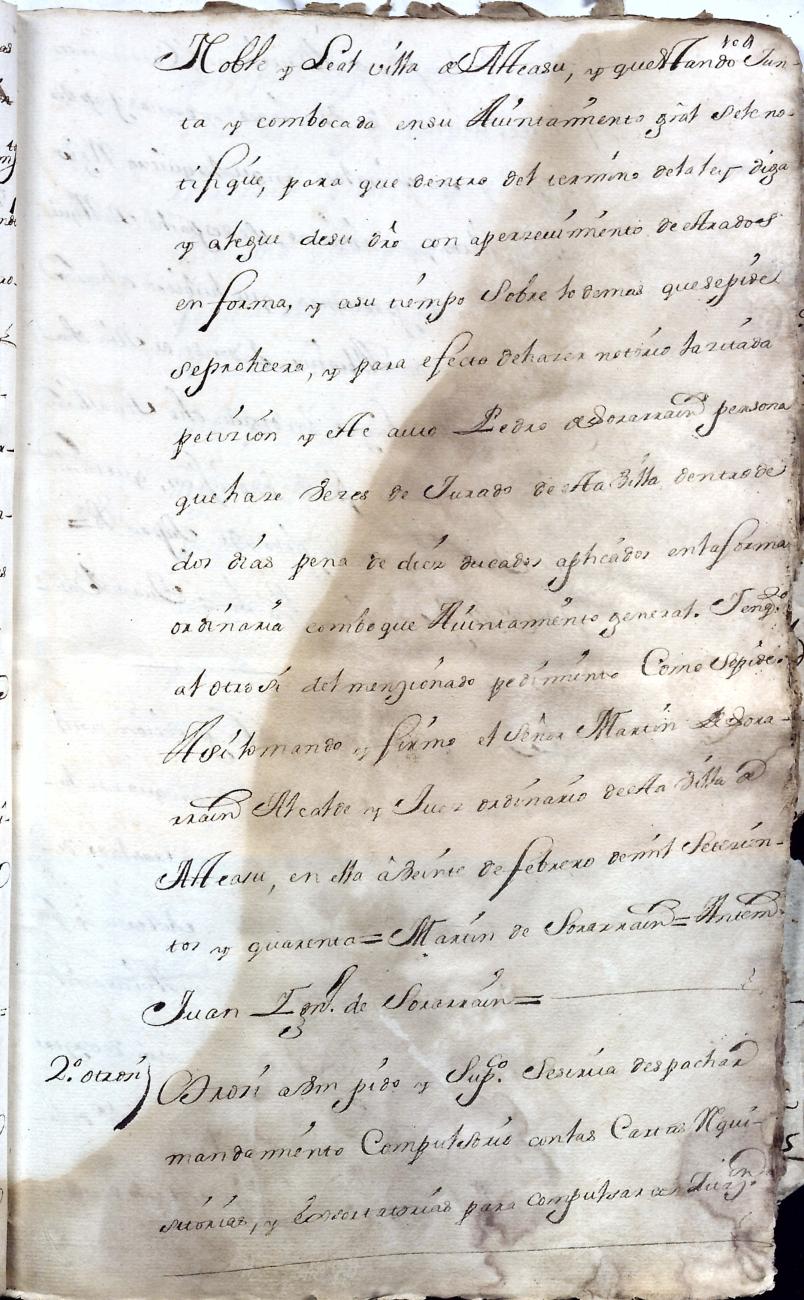 104
Noble y Leal villa de Atteasu, y questando Jun-
ta y combocada ensu Aiuntamiento gral sele no-
tifique, para que dentro del termino dela ley diga
y alegue desu dro con aperzeuimiento de estrados
en forma, y asu tiempo sobre lo demas que sepide
seprobeera, y para efecto dehazer notorio la zitada
petizion y este auto Pedro de Sorarrain persona
que haze Vezes de Jurado de esta Villa dentro de
dos dias pena de diez ducados aplicados enlaforma
ordinaria comboque Aiuntamiento general. Teng.
al otrosi del menzionado pedimiento Como sepide.
Asi lo mando y firmo el Señor Martin de Sora-
rrain Alcalde y Juez ordinario de esta Villa de
Atteasu, en ella à Veinte de febrero de mil Setezien-
tos y quarenta = Martin de Sorarrain = Antemi
Juan Ign.º de Sorarrain =
2.º otrosi) Otrosi a Vm pido y Sup.co Sesirua despachar
mandamiento Compulsorio conlas Cartas Requi-
sitorias, y Exsortatorias para compulsar con